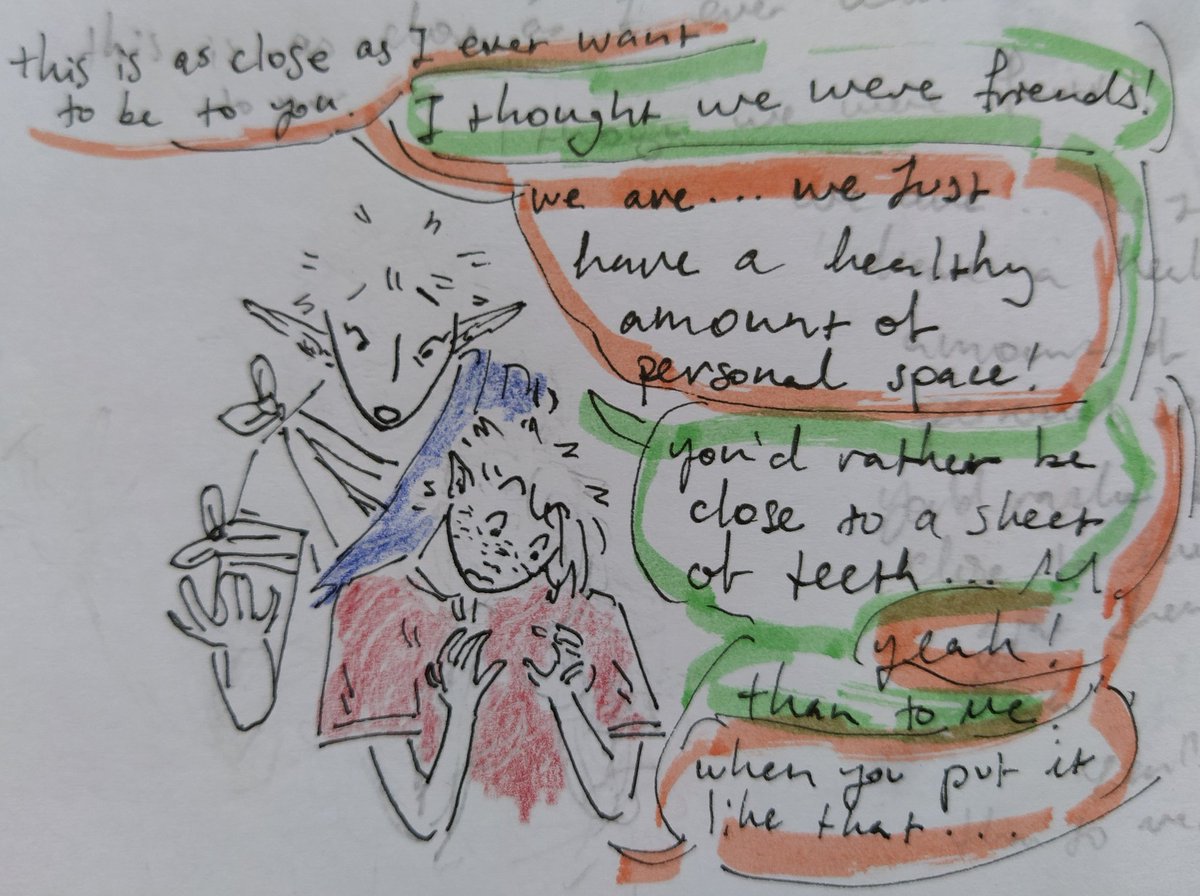 this is as close as I ever want
to be to you.
I thought we were friends!
we are... we just
have a healthy
amount of
personal space!
you'd rather be
close to a sheet
of teeth...
yeah!
than to me
when you put it
like that....